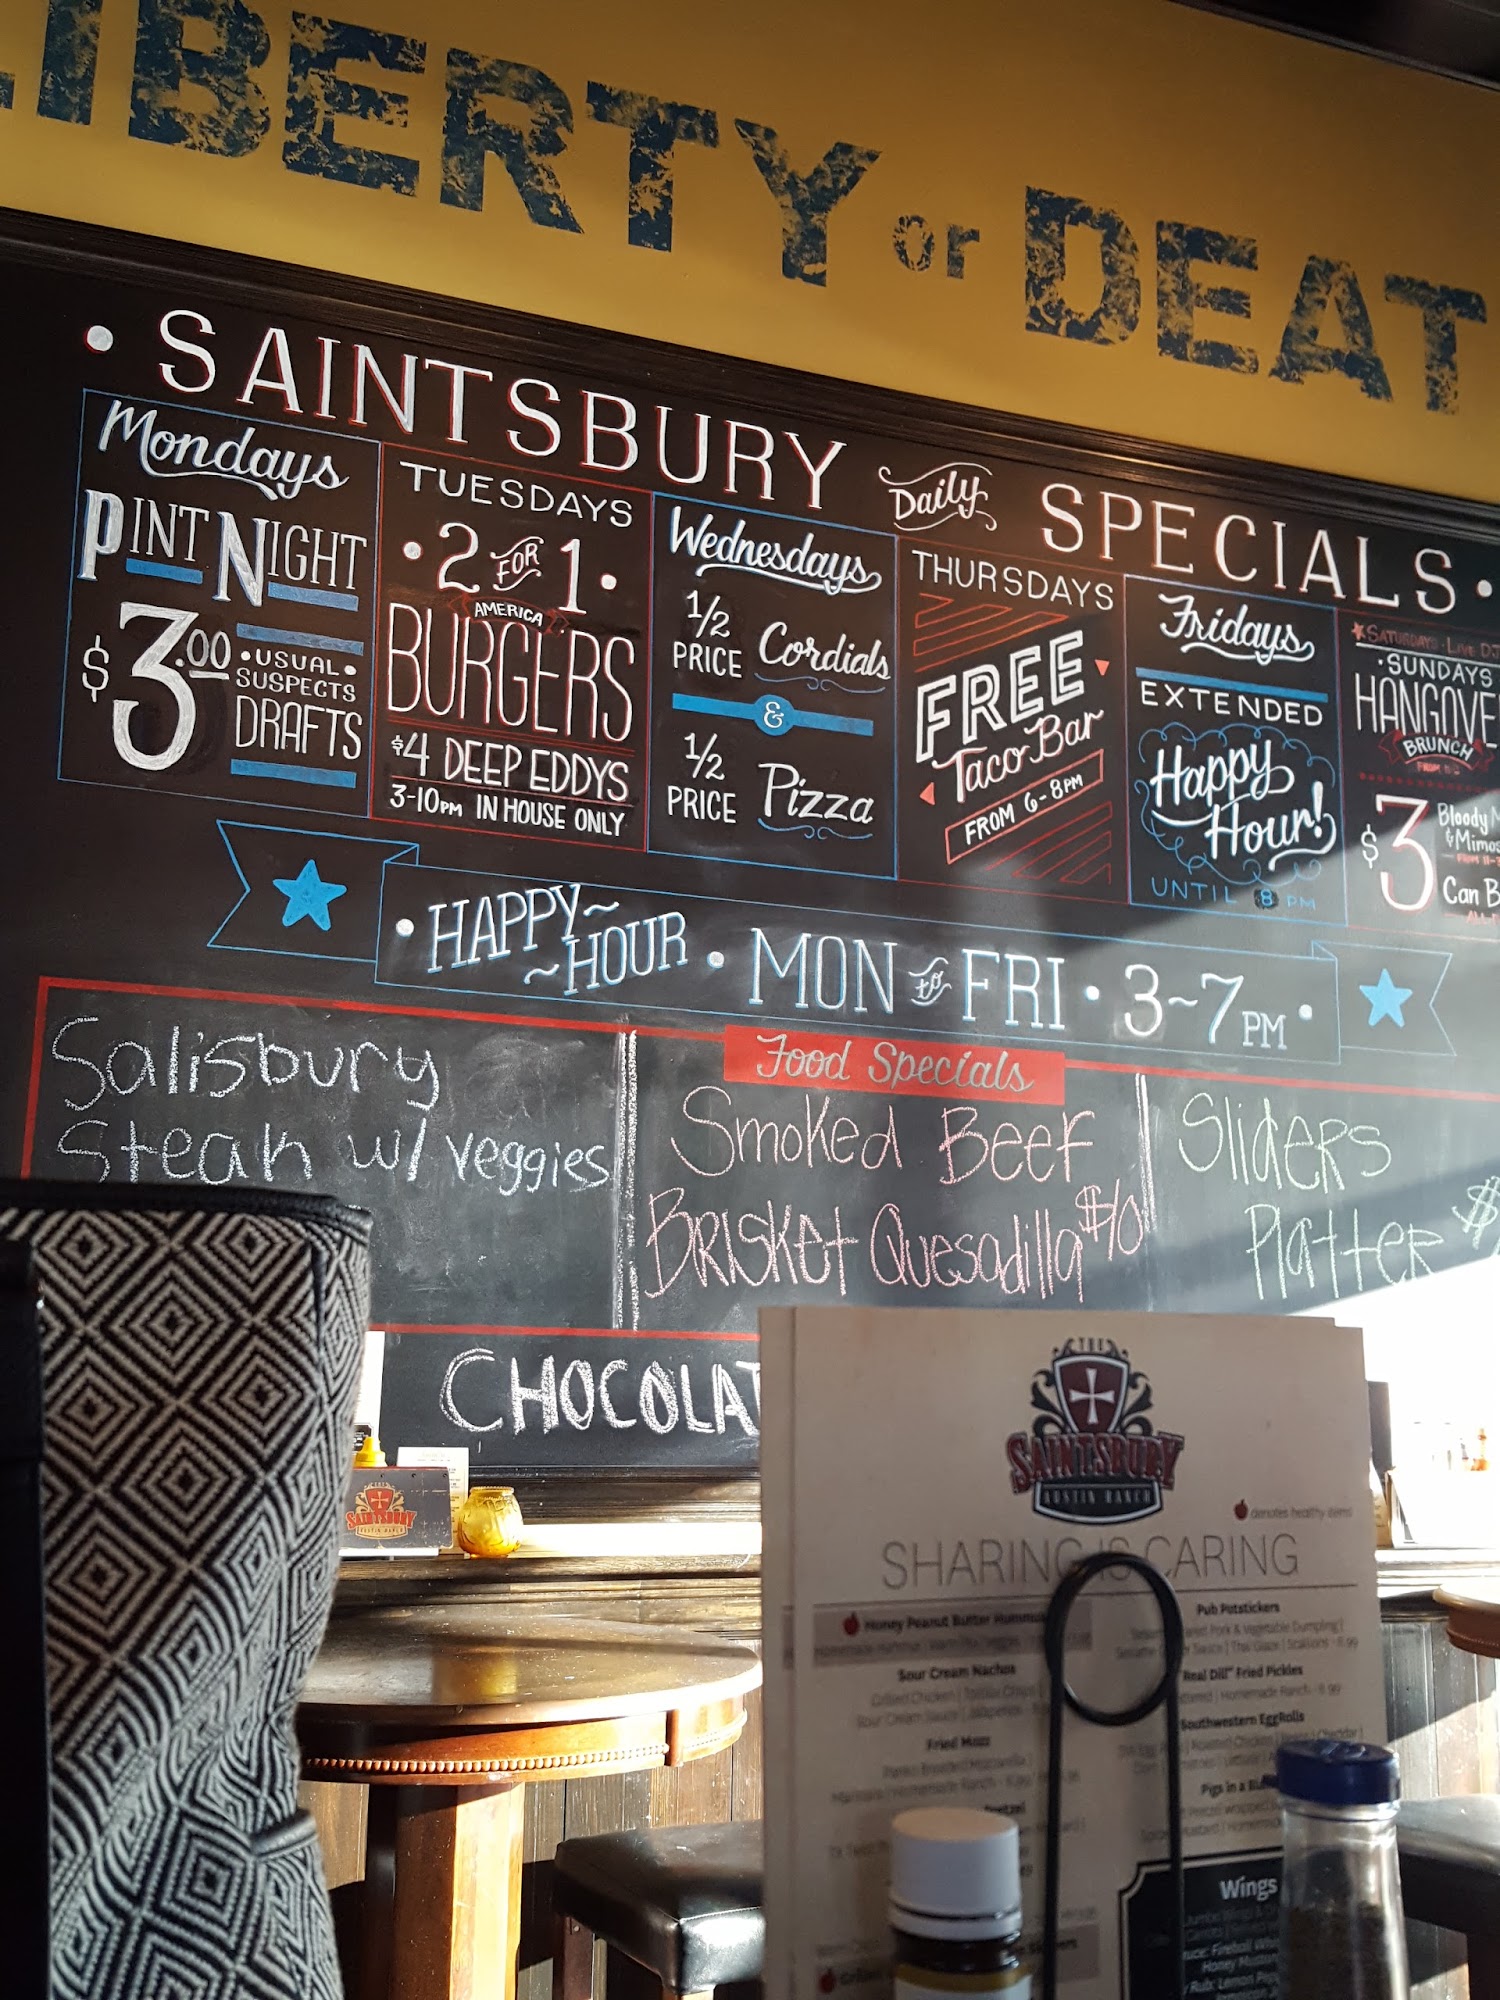 LIBERTY or DEAT
SAINTSBURY Daily SPECIALS
Mondays
PINT NIGHT
$3.00
USUAL
SUSPECTS
DRAFTS
TUESDAYS
2 FOR 1
AMERICA
BURGERS
$4 DEEP EDDYS
3-10PM IN HOUSE ONLY
Wednesdays
1/2
PRICE Cordials
&
1/2
PRICE Pizza
THURSDAYS
FREE
Taco Bar
FROM 6-8PM
Fridays
EXTENDED
Happy
Hour!
UNTIL 8 PM
SATURDAYS · LIVE DJ
SUNDAYS
HANGOVE
BRUNCH
$3
Bloody
& Mimos
Can B
HAPPY HOUR · MON to FRI · 3-7PM
Food Specials
Salisbury
Steak w/ veggies
Smoked Beef
Brisket Quesadilla $10
Sliders
Platter $
CHOCOLAT
SAINTSBURY
THE
SAINTSBURY
AUSTIN RANCH
denotes healthy items
SHARING IS CARING
Honey Peanut Butter Hummus
Sour Cream Nachos
Fried Mozz
Pub Potstickers
Real Dill Fried Pickles
Southwestern EggRolls
Pigs in a
Wings